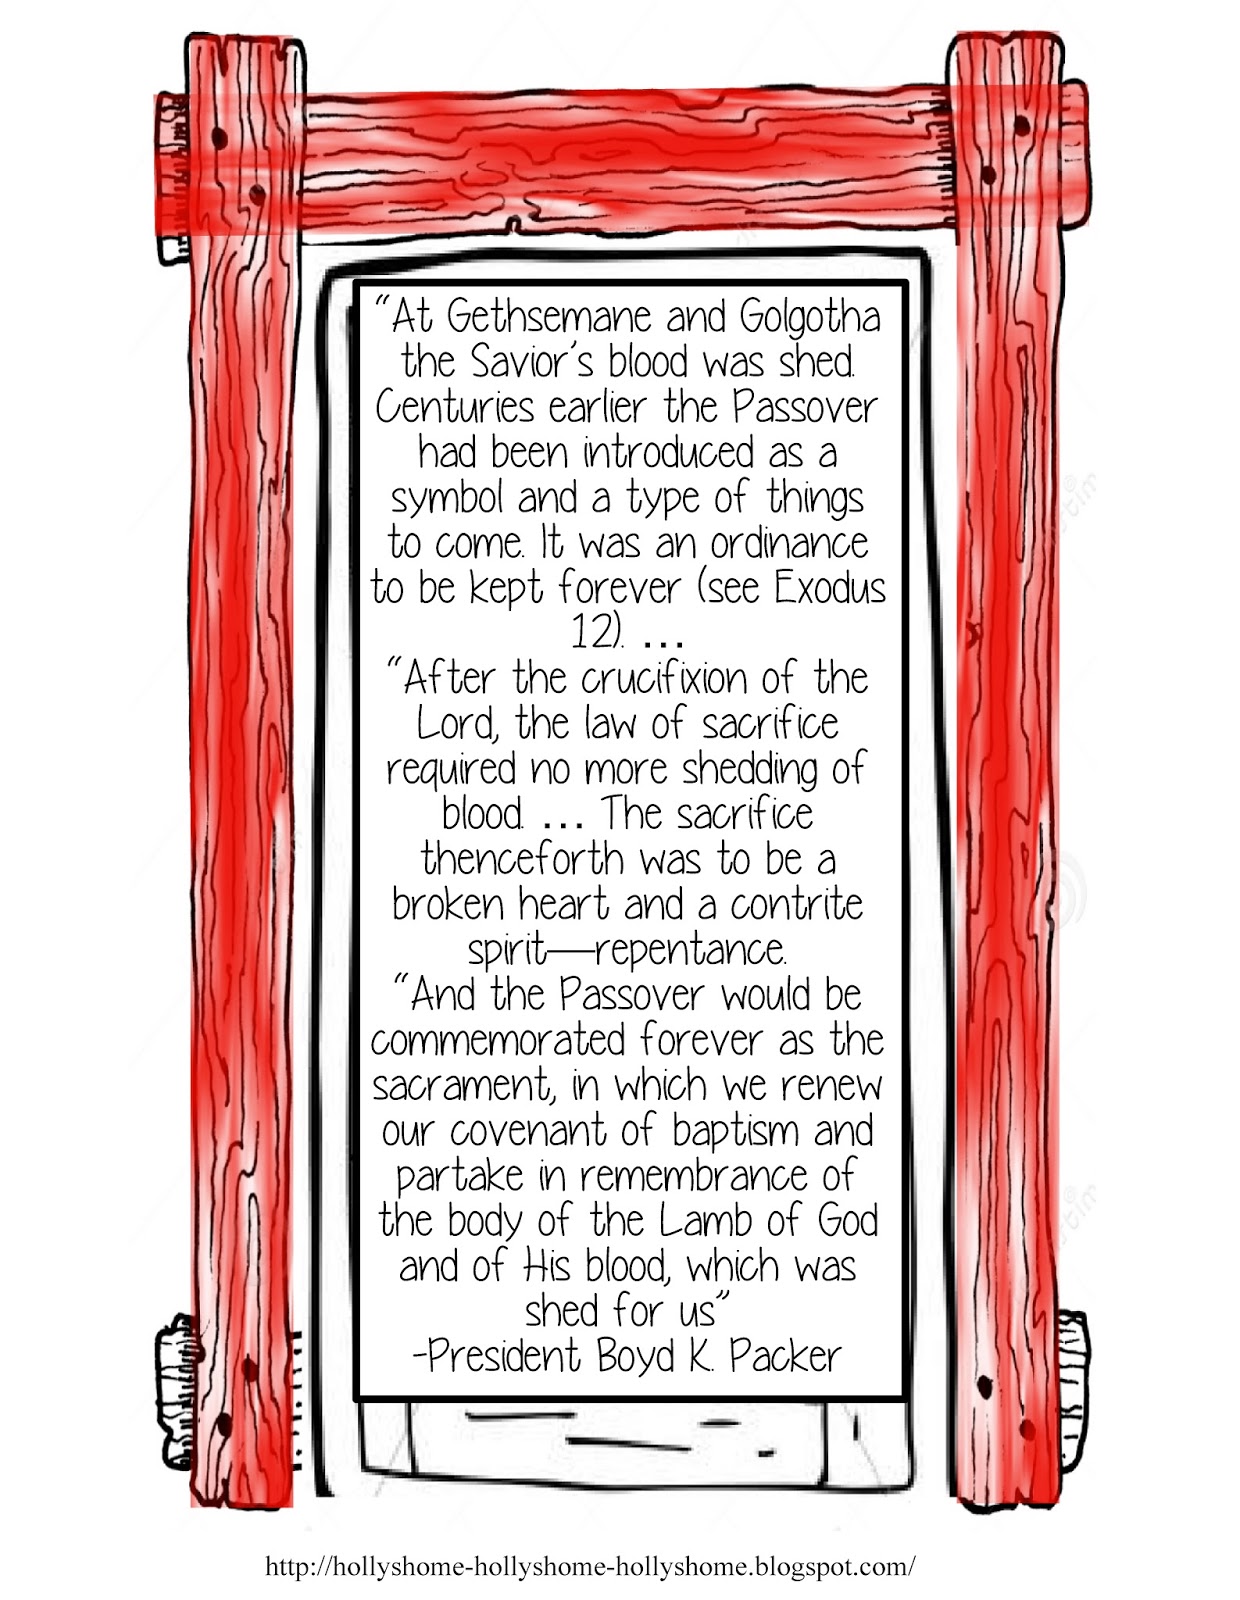 “At Gethsemane and Golgotha
the Savior’s blood was shed.
Centuries earlier the Passover
had been introduced as a
symbol and a type of things
to come. It was an ordinance
to be kept forever (see Exodus
12). …
“After the crucifixion of the
Lord, the law of sacrifice
required no more shedding of
blood. … The sacrifice
thenceforth was to be a
broken heart and a contrite
spirit—repentance.
“And the Passover would be
commemorated forever as the
sacrament, in which we renew
our covenant of baptism and
partake in remembrance of
the body of the Lamb of God
and of His blood, which was
shed for us”
-President Boyd K. Packer
http://hollyshome-hollyshome-hollyshome.blogspot.com/